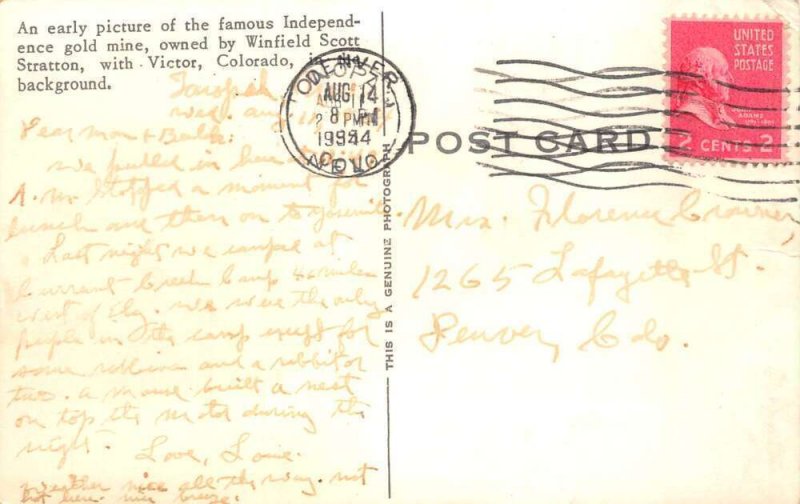 An early picture of the famous Independ-
ence gold mine, owned by Winfield Scott
Stratton, with Victor, Colorado, in
background.
Wed. Aug
Dear Mom &
We pulled in here
A.M. Stopped a moment for
lunch and then on to Yosemite.
Last night we camped at
Currant Creek Camp miles
west of Ely. We were the only
people in the camp except for
some robins and a rabbit or
two. A mouse built a nest
on top the motor during the
night.
Love,
Weather nice all the way. not
hot here. nice breeze.
DENVER
AUG 14
8 PM
COLO
THIS IS A GENUINE PHOTOGRAPH
POST CARD
UNITED
STATES
POSTAGE
JOHN
ADAMS
2 CENTS 2
Mrs. Florence
1265 Lafayette St.
Denver, Colo.